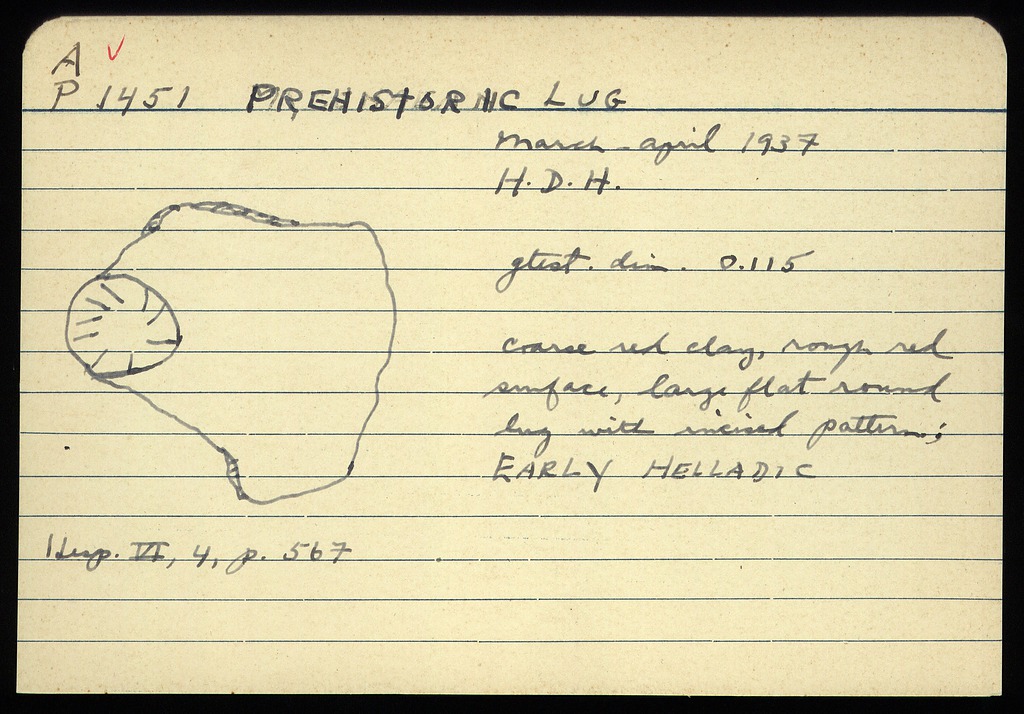 A ✓
P 1451 PREHISTORIC LUG
March - April 1937
H.D.H.
gtest. dim. 0.115
coarse red clay, rough red
surface, large flat round
lug with incised pattern;
EARLY HELLADIC
Hesp. VI, 4, p. 567